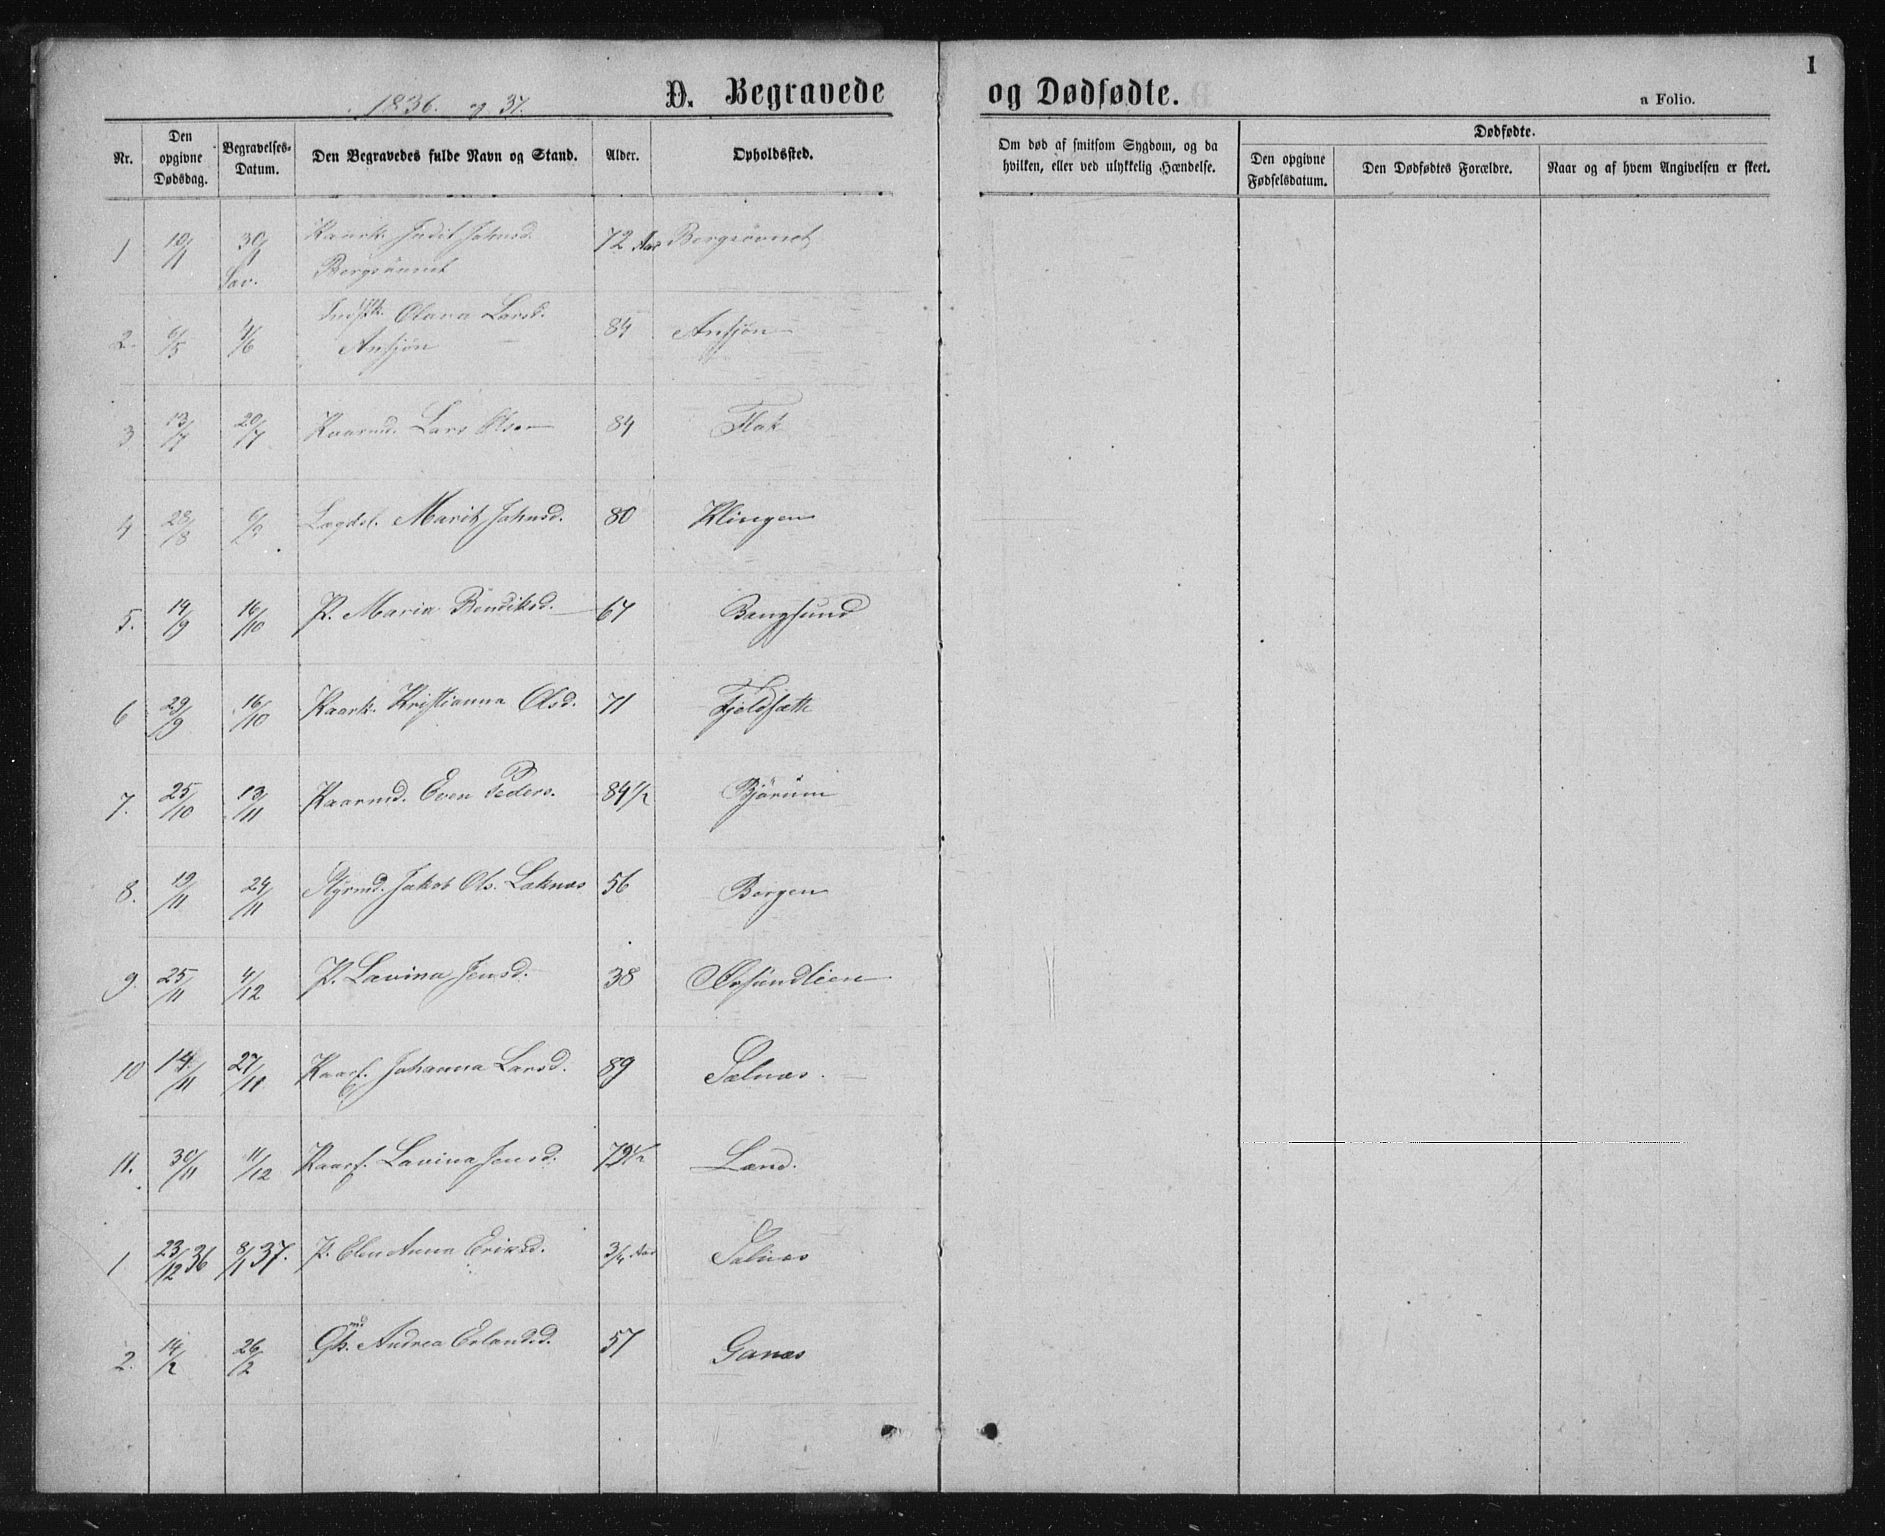 1836. og 37.
D. Begravede
og Dødfødte.
1
a Folio.
Nr.
Den opgivne Dødsdag.
Begravelses-Datum.
Den Begravedes fulde Navn og Stand.
Alder.
Opholdssted.
Om død af smitsom Sygdom, og da hvilken, eller ved ulykkelig Hændelse.
Dødfødte.
Den opgivne Fødselsdatum.
Den Dødfødtes Forældre.
Naar og af hvem Angivelsen er skeet.
1 10/1 30/1 Kaark. Judit Johnsd. 72 Aar
2. 6/5 Olava Larsd. 84
3 13/7 20/7 Kaarmd. Lars Olsen 84 Flak
4 28/8 Lægdsl. Marit Johnsd. 80 Klingen
5. 19/9 16/10 P. Maria Bendiksd. 67 Bangsund
6 29/9 16/10 Kaark. Kristianna Olsd. 71 Fjeldsætt
7. 25/10 13/11 Kaarmd. Even Peders. 84 1/2 Bjørum
8. 19/11 24/11 Styrmd. Jakob Ols. Laknæs 56 Borgen
9 25/11 4/12 P. Lavina Jensd. 38
10 14/11 27/11 Kaarf. Johanna Larsd. 89 Sælnæs.
11. 30/11 11/12 Kaarf. Lavina Jensd. 79 1/2 Land.
1 23/12 36 8/1 37. P. Elen Anna Eriksd. 3/4 Aar Salnæs
2. 14/2 26/2 Andrea Erlandsd. 57 Ganæs